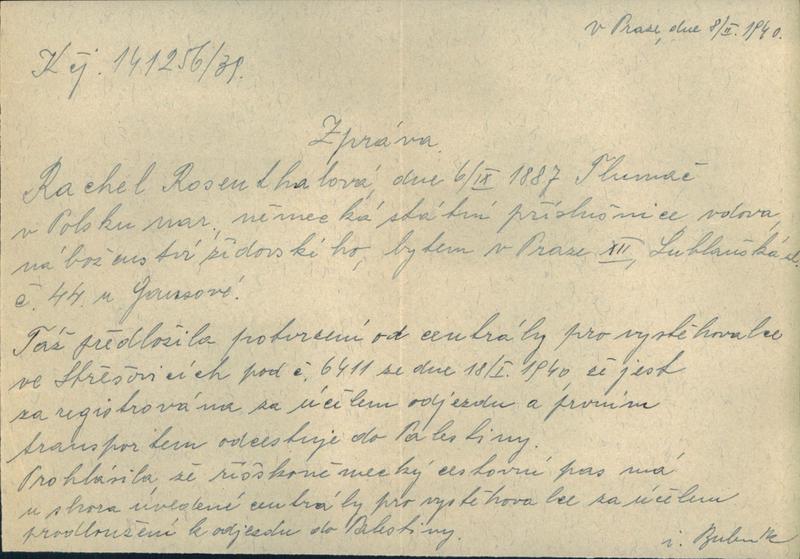 v Praze, dne 8/II. 1940.
K čj. 141256/39.
Zpráva.
Rachel Rosenthalová, dne 6/IX 1887 Tlumač
v Polsku nar., německá státní příslušnice vdova,
náboženství židovského, bytem v Praze XII, Lublaňská ul.
č. 44. u Gansové.
Táž předložila potvrzení od centrály pro vystěhovalce
ve Střešovicích pod č. 6411 ze dne 18/I. 1940 že jest
zaregistrována za účelem odjezdu a prvním
transportem odcestuje do Palestiny.
Prohlásila že říšskoněmecký cestovní pas má
u shora úvedené centrály pro vystěhovalce za účelem
prodloužení k odjezdu do Palestiny.